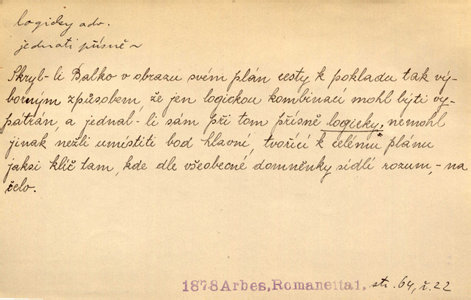 logicky adv.
jednati přísně ~
Skryl-li Balko v obrazu svém plán cesty k pokladu tak vý-
borným způsobem, že jen logickou kombinací mohl býti vy-
pátrán, a jednal-li sám při tom přísně logicky, nemohl
jinak, nežli umístiti bod hlavní, tvořící k celému plánu
jaksi klíč tam, kde dle všeobecné domněnky sídlí rozum, - na
čelo.
1878 Arbes, Romaneita 1, str. 64, ř. 22